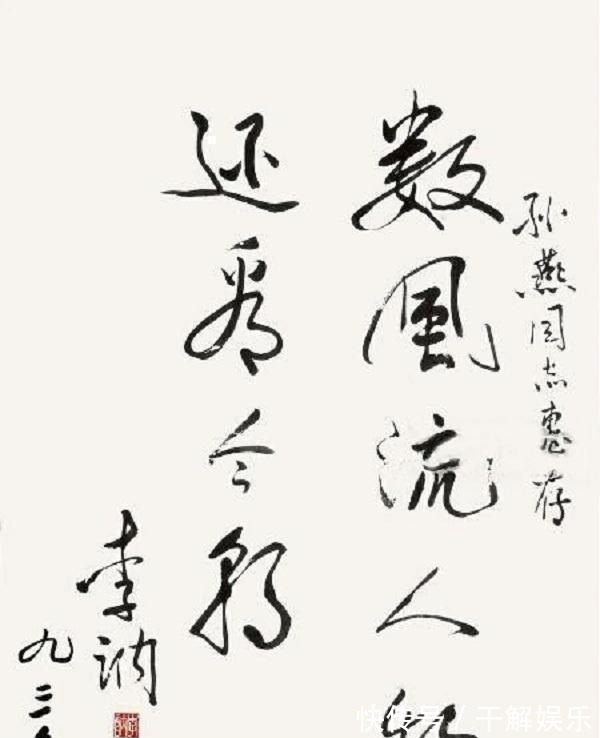 孙燕同志惠存
数风流人物
还看今朝
李讷
九三年
快传号/干解娱乐